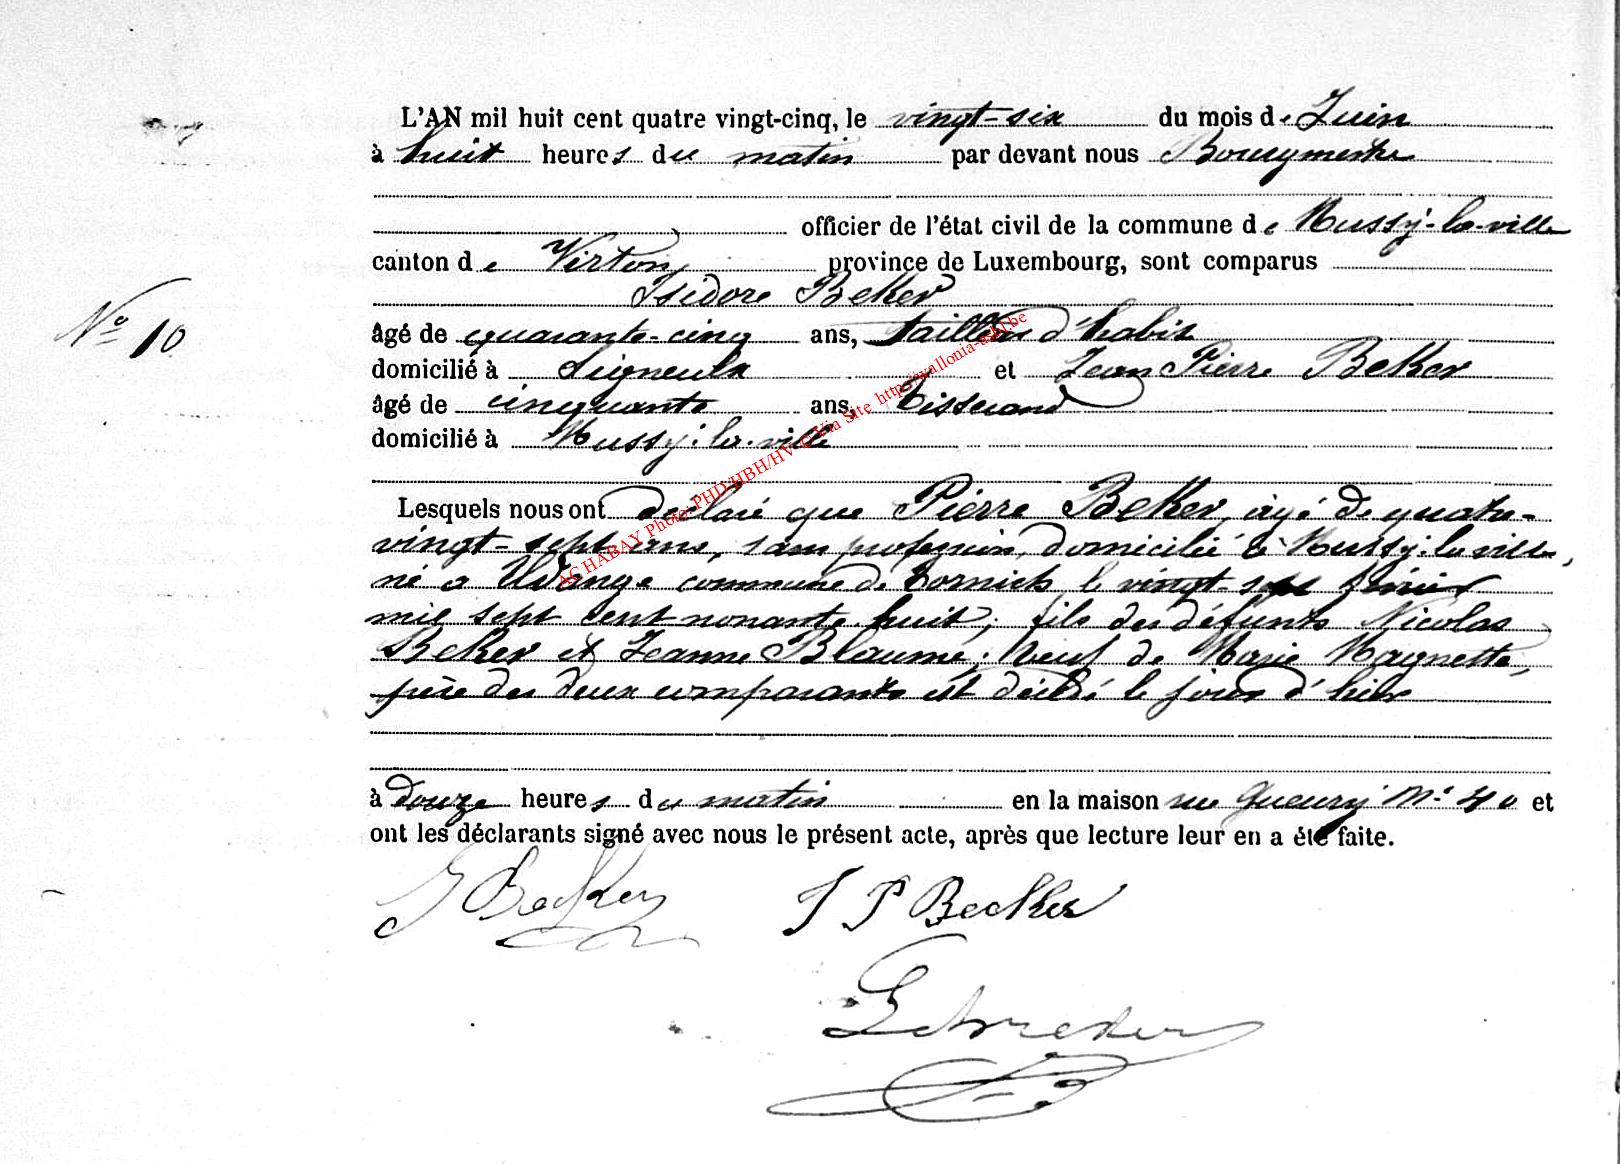 L'AN mil huit cent quatre vingt-cinq, le vingt-six du mois de Juin
à huit heures du matin par devant nous Bourgmestre
officier de l'état civil de la commune de Mussy-la-ville
canton de Virton, province de Luxembourg, sont comparus
Isidore Beker
N° 10
âgé de quarante-cinq ans, tailleur d'habit
domicilié à Signeulx et Jean Pierre Beker
âgé de cinquante ans, Tisserand
domicilié à Mussy-la-ville
Lesquels nous ont déclaré que Pierre Beker, âgé de quatre-
vingt-sept ans, sans profession, domicilié à Mussy-la-ville,
né à Udange commune de Tornich le vingt-sept février
mil sept cent nonante huit, fils des défunts Nicolas
Beker et Jeanne Blaume, veuf de Marie Magnette,
père des deux comparants est décédé le jour d'hier
à douze heures du matin en la maison rue Gueury N° 40 et
ont les déclarants signé avec nous le présent acte, après que lecture leur en a été faite.
J Becker J P Becker
AC HABAY Photo: PHD/HBH/HV © Via Site http://wallonia-asbl.be